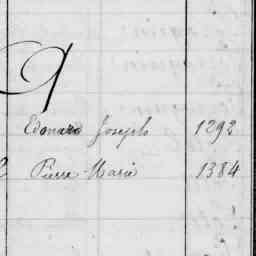 Q
Edouard Joseph 1292
Pierre Marie 1384